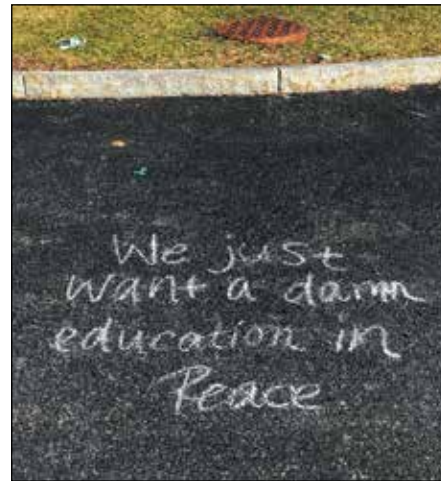 We just
want a damn
education in
Peace